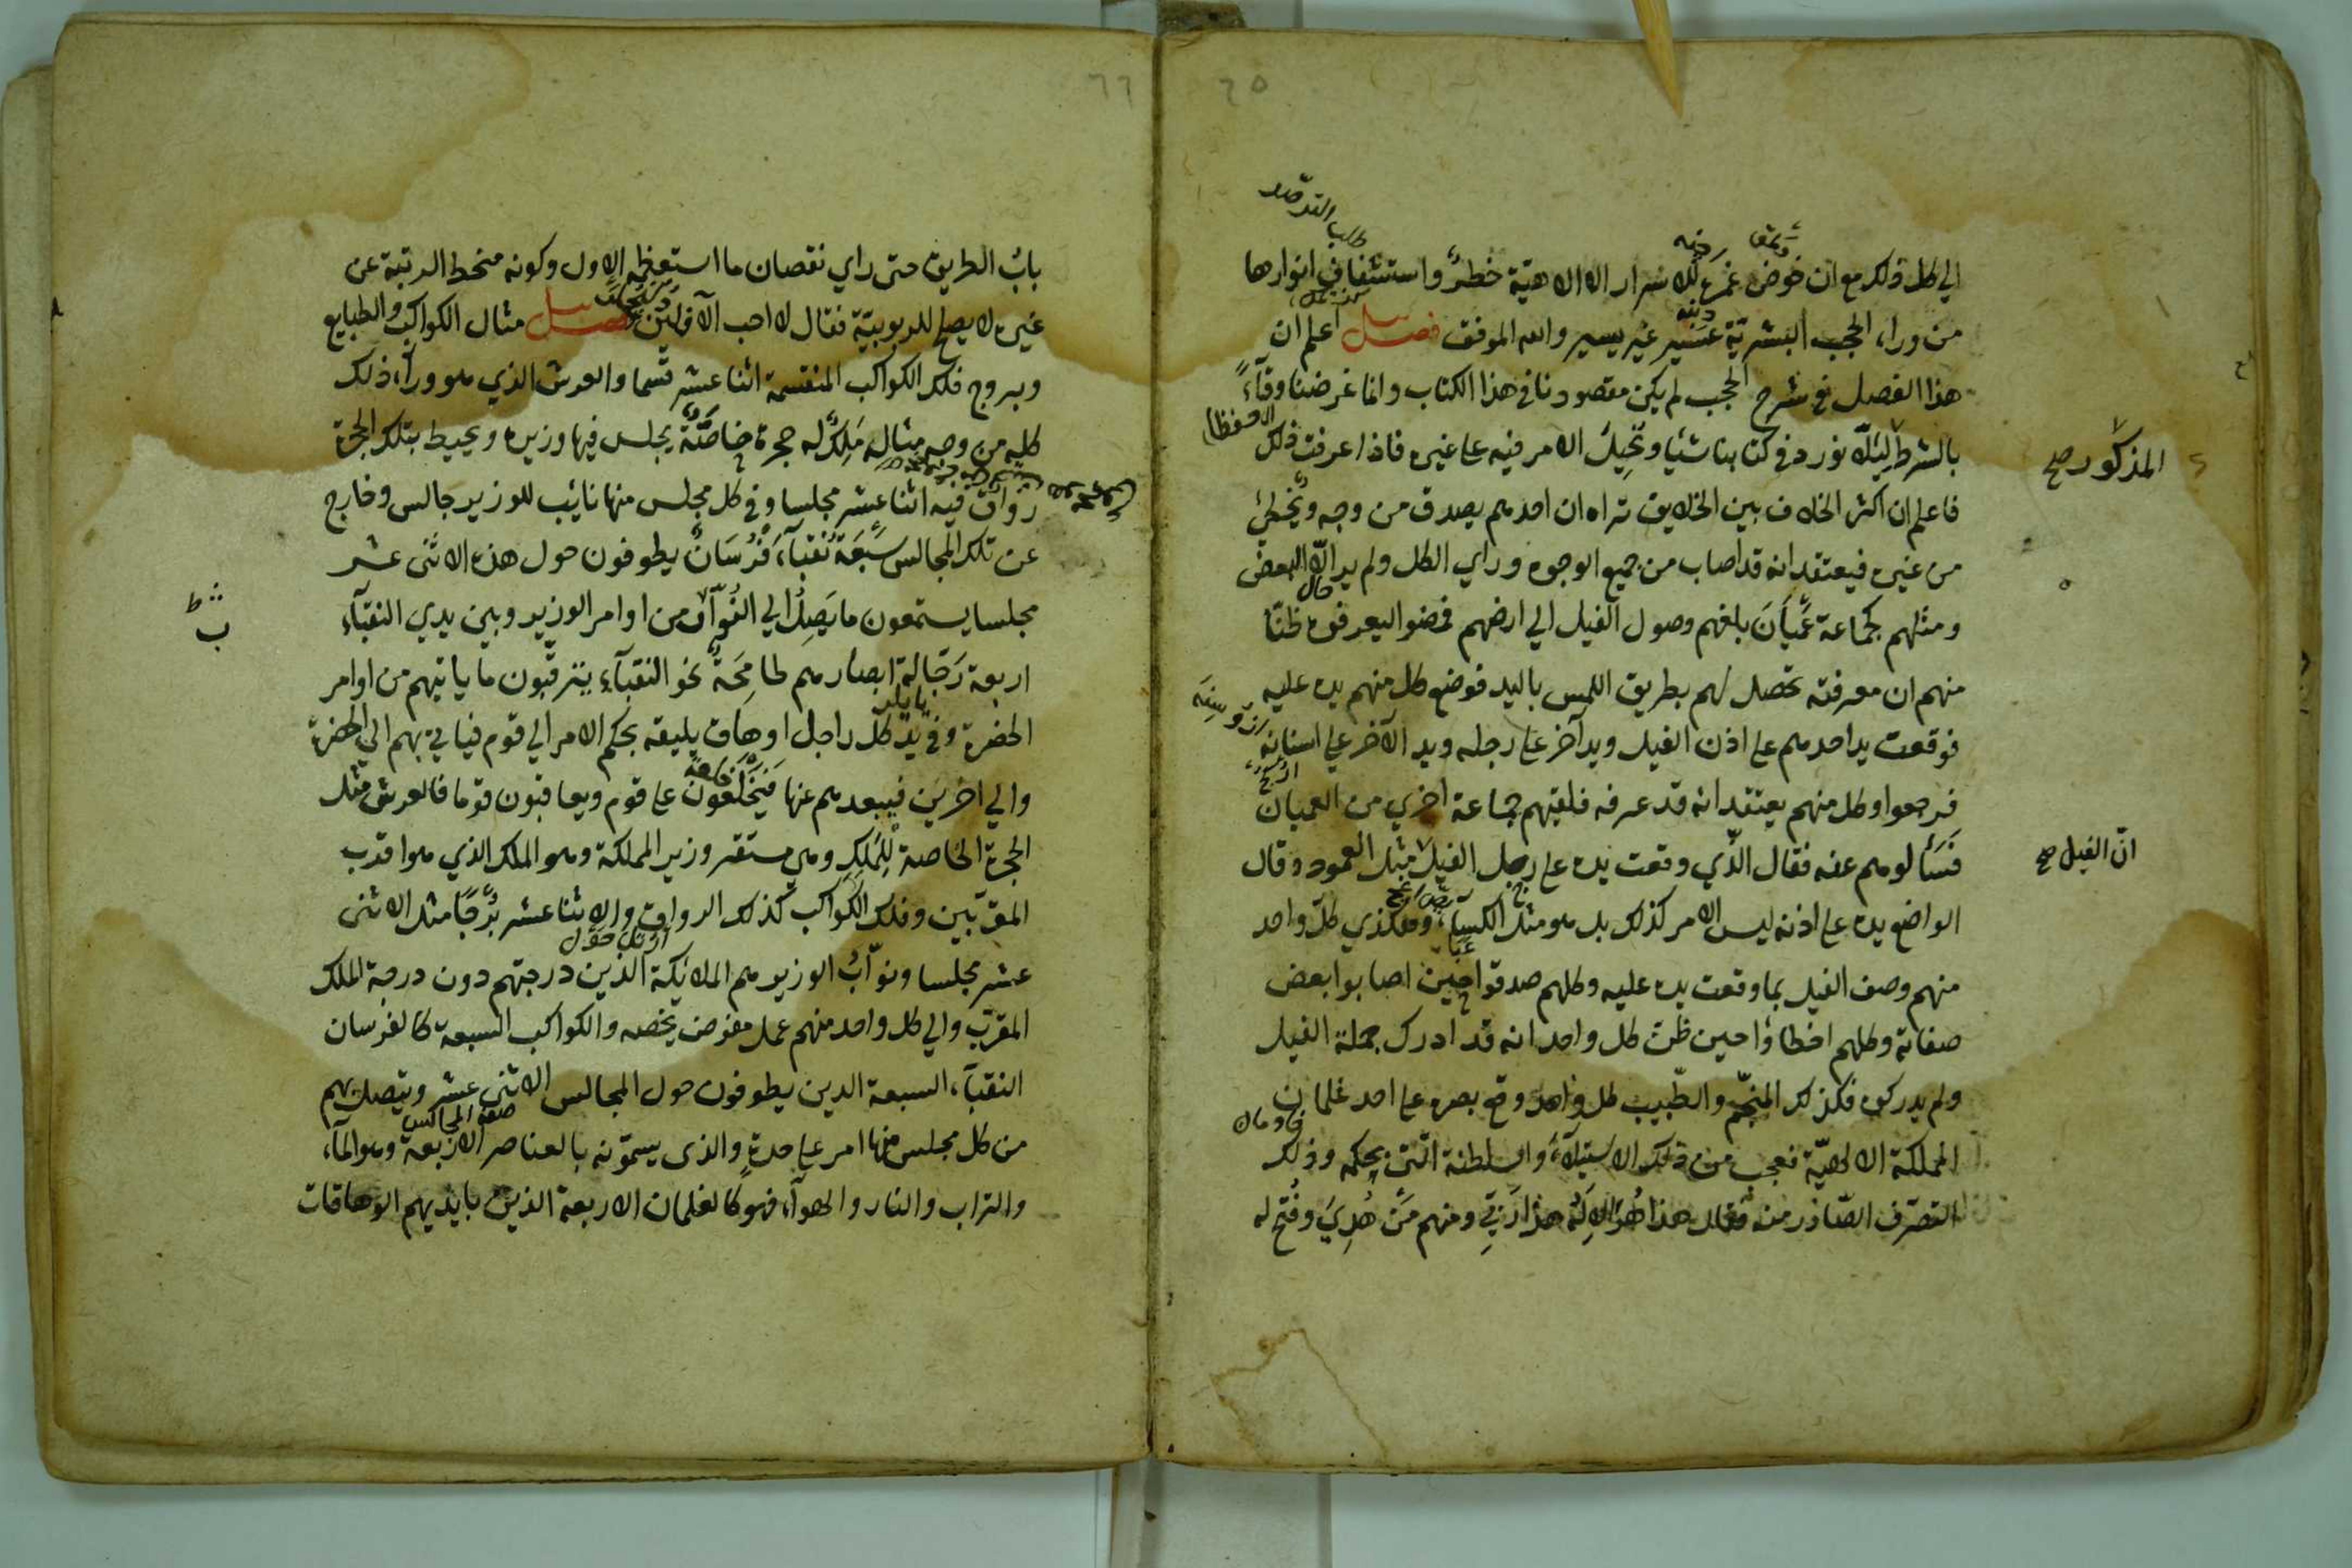 ٦٥
الي كل ذلك مع ان خوض غمرع للاسرار الالاهيّة خطر واستشفاف انوارها
من وراء الحجب البشريّة عسير غير يسير والله الموفق فصل اعلم ان
هذا الفصل في شرح الحجب لم يكن مقصودنا في هذا الكتاب وانما غرضنا وفآءً
بالشرط ليئلّا نورد في كتابنا شيئا ونحيل الامر فيه على غيره فاذا عرفت ذلك
المذكور صح
فاعلم ان اكثر الخلاف بين الخلايق تراه ان احدهم يصدق من وجه ويخطئ
من غيره فيعتقد انه قد اصاب من جميع الوجوه وراي الكل ولم ير الّا البعض
ومثلهم كجماعة عميان بلغهم وصول الفيل الي ارضهم فمضوا ليعرفوه ظنّا
منهم ان معرفته تحصل لهم بطريق اللمس باليد فوضع كل منهم يده عليه
فوقعت يد احدهم على اذن الفيل ويد آخر على رجله ويد الآخر على اسنانه
فرجعوا وكل منهم يعتقد انه قد عرفه فلقيتهم جماعة اخري من العميان
فسألوهم عنه فقال الذّي وقعت يده على رجل الفيل مثل العمود وقال
انّ الفيل صح
الواضع يده على اذنه ليس الامر كذلك بل هو مثل الكسآء وهكذي كلّ واحد
منهم وصف الفيل بما وقعت يده عليه وكلهم صدقوا حين اصابوا بعض
صفاته وكلهم اخطاؤا حين ظنّ كل واحد انه قد ادرك جملة الفيل
ولم يدركوه فكذلك المنجّم والطّبيب كل واحد وقع بصره على احد غلمان
المملكة الالهيّة فعجب من ذلك الاستيلآء والسلطنة الّتي بحكمه وذلك
التصرّف الصّادر منه فقال هذا هو الاله هذا ربّي ومنهم مَن هُدِيَ وفُتح له
٦٦
بابُ الطريق حتى راي نقصان ما استعظمه الاول وكونه منحط الرتبة عن
غيره لا يصلح للربوبيّة فقال لا احب الآفلين فصل مثال الكواكب والطبايع
وبروج فلك الكواكب المنقسمة اثنا عشر قسما والعرش الذي هو وراء ذلك
كله من وجه مثال مَلِكٌ له حجرة خاصّة يجلس فيها وزيره ويحيط بتلك الحجرة
رواق فيه اثنا عشر مجلسا وفي كل مجلس منها نايب للوزير جالس وخارج
عن تلك المجالس سبعة نقبآء فُرْسَانٌ يطوفون حول هذه الاثنى عشر
مجلسا يستمعون ما يَصِلُ الي النُوّاب من اوامر الوزير وبين يدي النقبآء
اربعة رَجّالة ابصارهم طامِحَةٌ نحو النقبآء يترقّبون ما ياتيهم من اوامر
الحضرة وفي يد كل راجل اوهاق يليقه بحكم الامر الي قوم فيأتي بهم الي الحضرة
والي اخرين فيبعدهم عنها فيخلَعون على قوم ويعاقبون قوما فالعرش مثل
الحجرة الخاصة للمَلِكِ وهي مستقر وزير المملكة وهو الملك الذي هو اقرب
المقرّبين وفلك الكواكب كذلك الرواق والاثنا عشر بُرجًا مثل الاثنى
عشر مجلسا ونوّابُ الوزير هم الملائكة الذين درجتهم دون درجة الملك
المقرّب والي كل واحد منهم عمل مفوض يخصه والكواكب السبعة كالفرسان
النقبآء السبعة الدين يطوفون حول المجالس الاثنى عشر ويتصل بهم
من كل مجلس منها امر على حدةٍ والذى يسمّونه بالعناصر الاربعة وهو المآء
والتراب والنار والهوآء فهو كالغلمان الاربعة الذين بايديهم الوهاقات